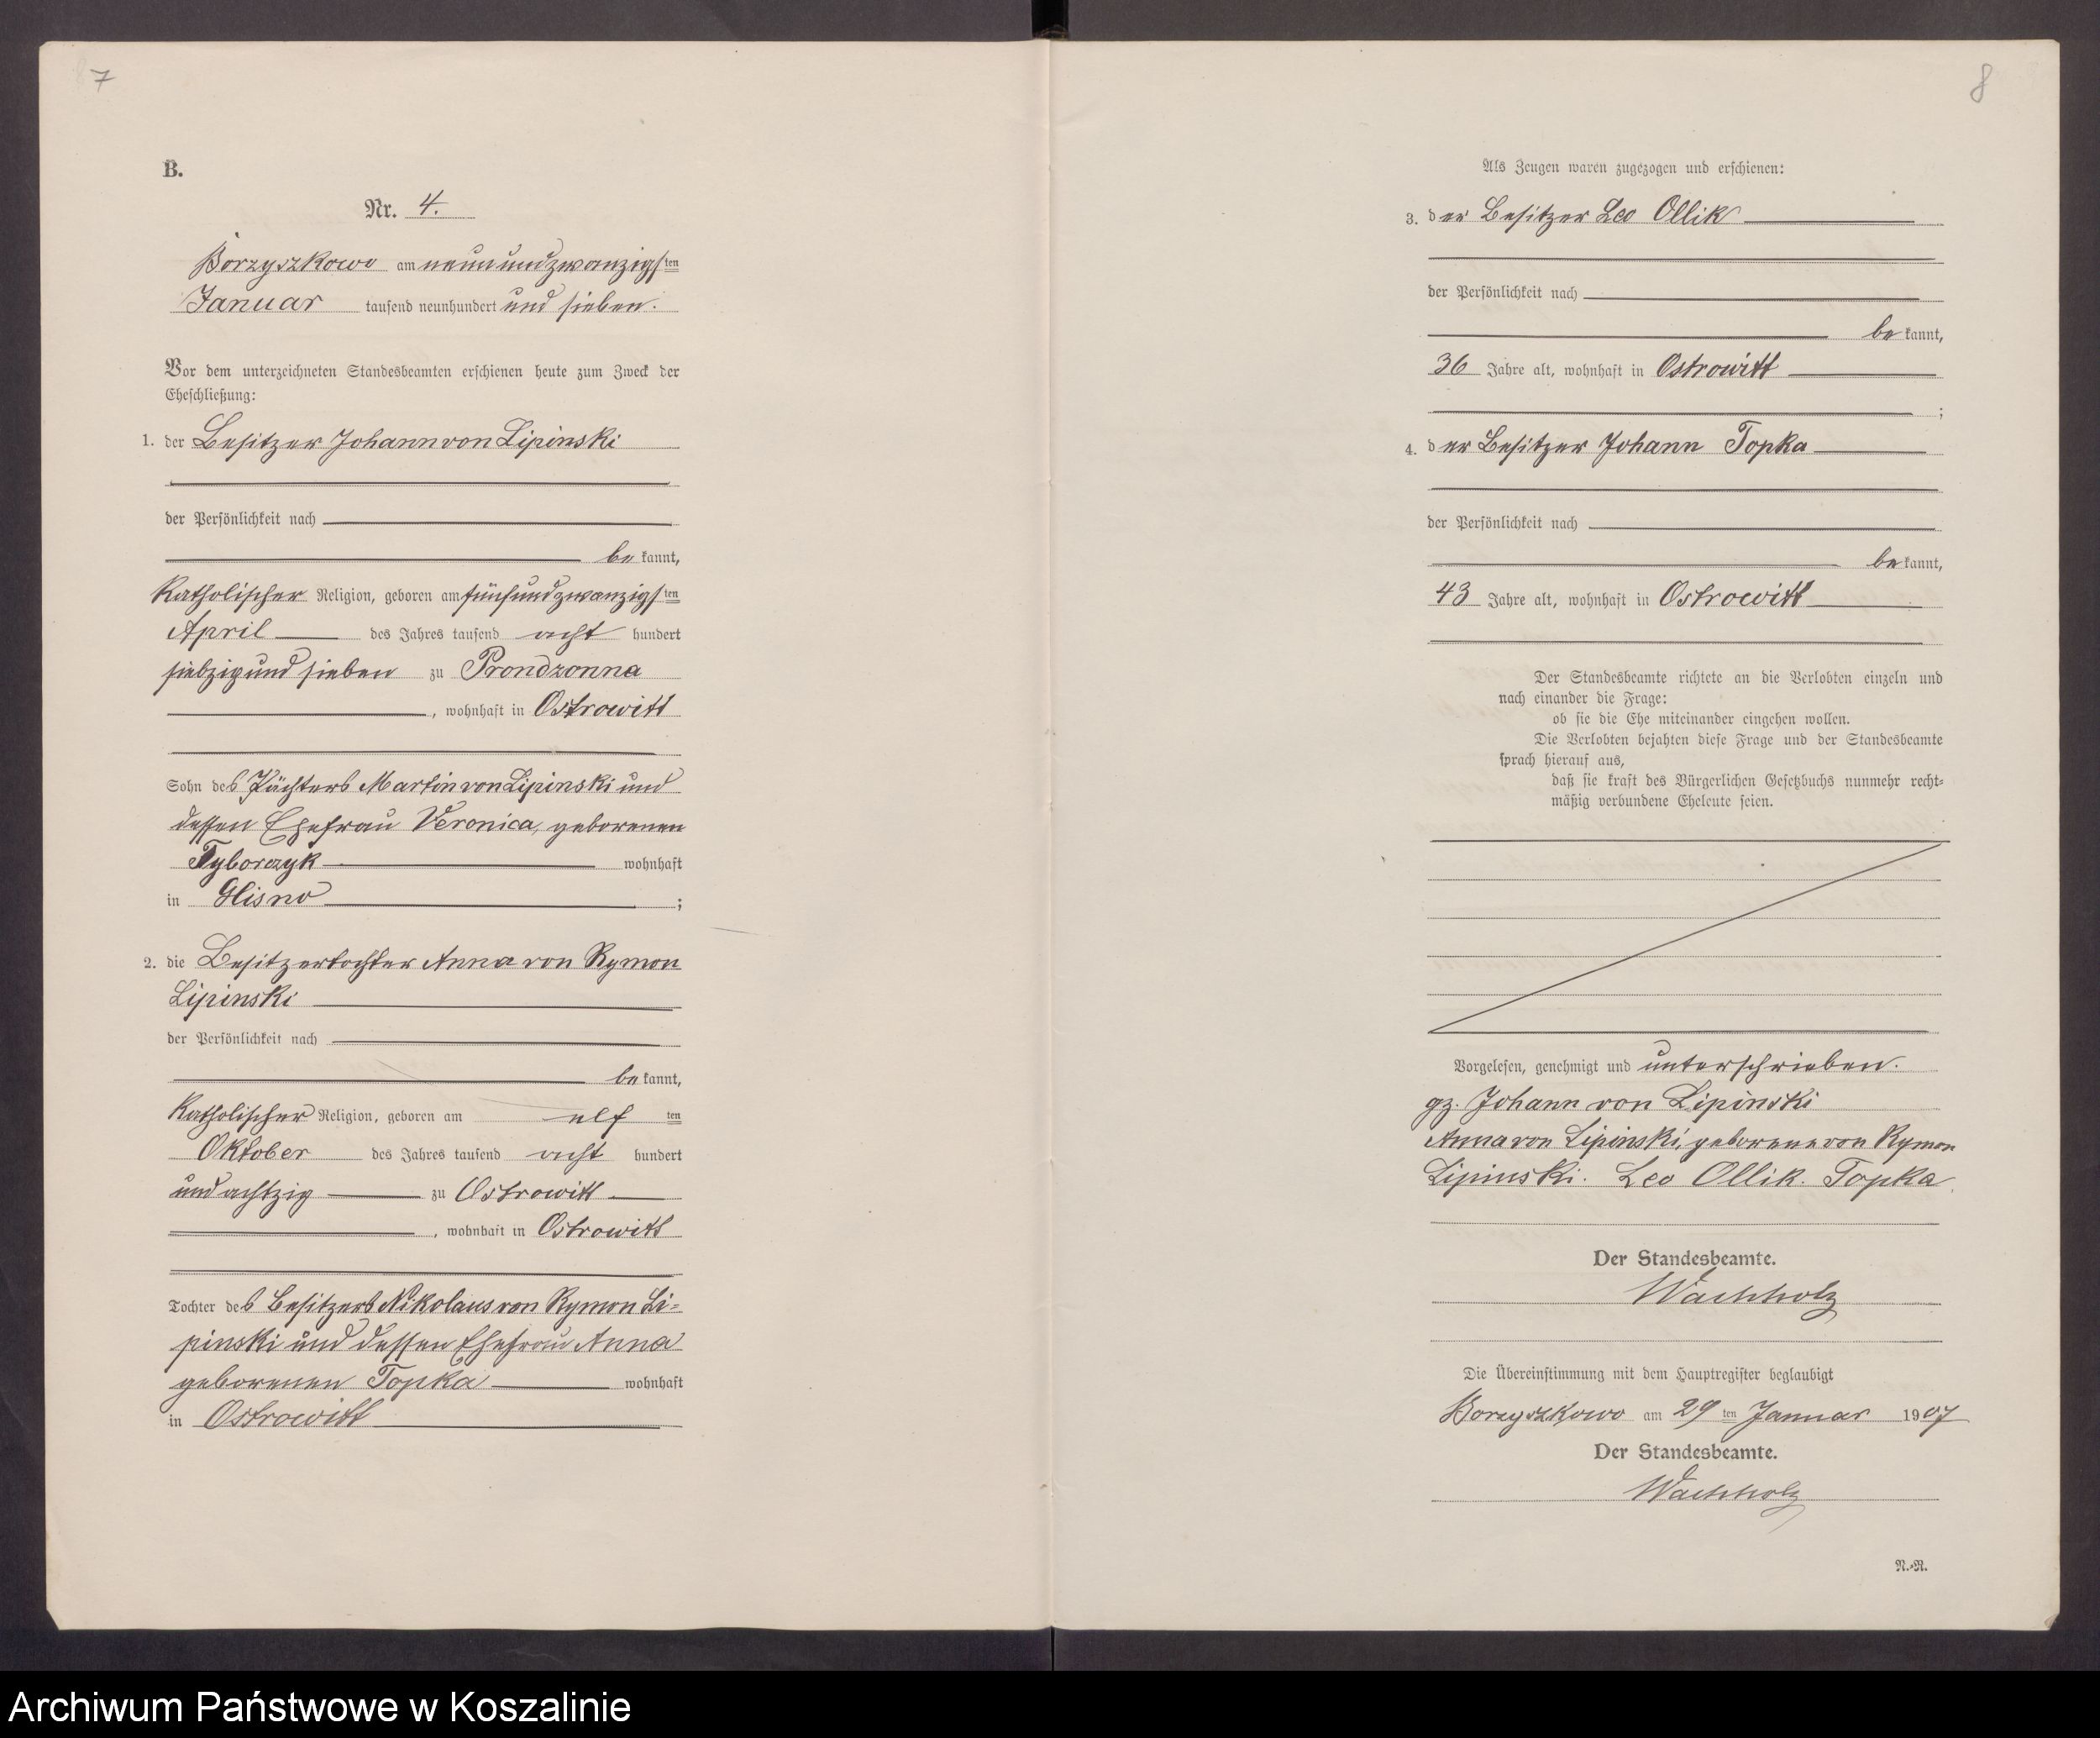 7
B.
Nr. 4.
Borzyszkowo am neunundzwanzigsten
Januar tausend neunhundert und sieben.
Vor dem unterzeichneten Standesbeamten erschienen heute zum Zweck der
Eheschließung:
1. der Besitzer Johann von Lipinski
der Persönlichkeit nach
bekannt,
Katholischer Religion, geboren am fünfundzwanzigsten
April des Jahres tausend acht hundert
siebzig und sieben zu Prondzonna
, wohnhaft in Ostrowitt
Sohn des Pächters Martin von Lipinski und
dessen Ehefrau Veronica, geborenen
Tyborczyk wohnhaft
in Glisno ;
2. die Besitzertochter Anna von Rymon
Lipinski
der Persönlichkeit nach
bekannt,
Katholischer Religion, geboren am elften
Oktober des Jahres tausend acht hundert
und achtzig zu Ostrowitt
, wohnhaft in Ostrowitt
Tochter des Besitzers Nikolaus von Rymon Li-
pinski und dessen Ehefrau Anna
geborenen Topka wohnhaft
in Ostrowitt
8
Als Zeugen waren zugezogen und erschienen:
3. der Besitzer Leo Ollik
der Persönlichkeit nach
bekannt,
36 Jahre alt, wohnhaft in Ostrowitt
;
4. der Besitzer Johann Topka
der Persönlichkeit nach
bekannt,
43 Jahre alt, wohnhaft in Ostrowitt
Der Standesbeamte richtete an die Verlobten einzeln und
nach einander die Frage:
ob sie die Ehe miteinander eingehen wollen.
Die Verlobten bejahten diese Frage und der Standesbeamte
sprach hierauf aus,
daß sie kraft des Bürgerlichen Gesetzbuchs nunmehr recht-
mäßig verbundene Eheleute seien.
Vorgelesen, genehmigt und unterschrieben.
gz. Johann von Lipinski
Anna von Lipinski, geborene von Rymon
Lipinski. Leo Ollik. Topka.
Der Standesbeamte.
Wachholz
Die Übereinstimmung mit dem Hauptregister beglaubigt
Borzyszkowo am 29ten Januar 1907
Der Standesbeamte.
Wachholz
N.-R.
Archiwum Państwowe w Koszalinie